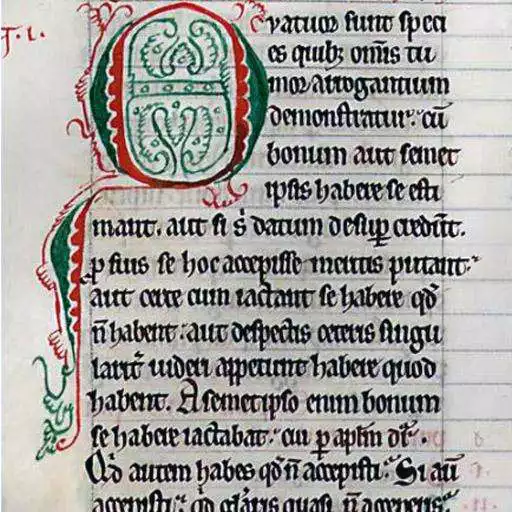 J. l.
Quatuor sunt speci
es quib; omnis tu
mor arrogantium
demonstratur. cū
bonum aut semet
ipsis habere se esti
mant. aut si s̄ datum desup̱ credūt.
ꝓ suis se hoc accepisse meritis putant.
aut certe cum iactant se habere qd̄
n̄ habent: aut despectis ceteris singu
larit̄ uideri appetunt habere quod
habent. A semetipso enim bonum
se habere iactabat. cui ꝑ aplm̄ dr̄.
Qd̄ autem habes qd̄ n̄ accepisti. Si aū
accepisti. qd̄ glāris quasi n̄ acceperis.